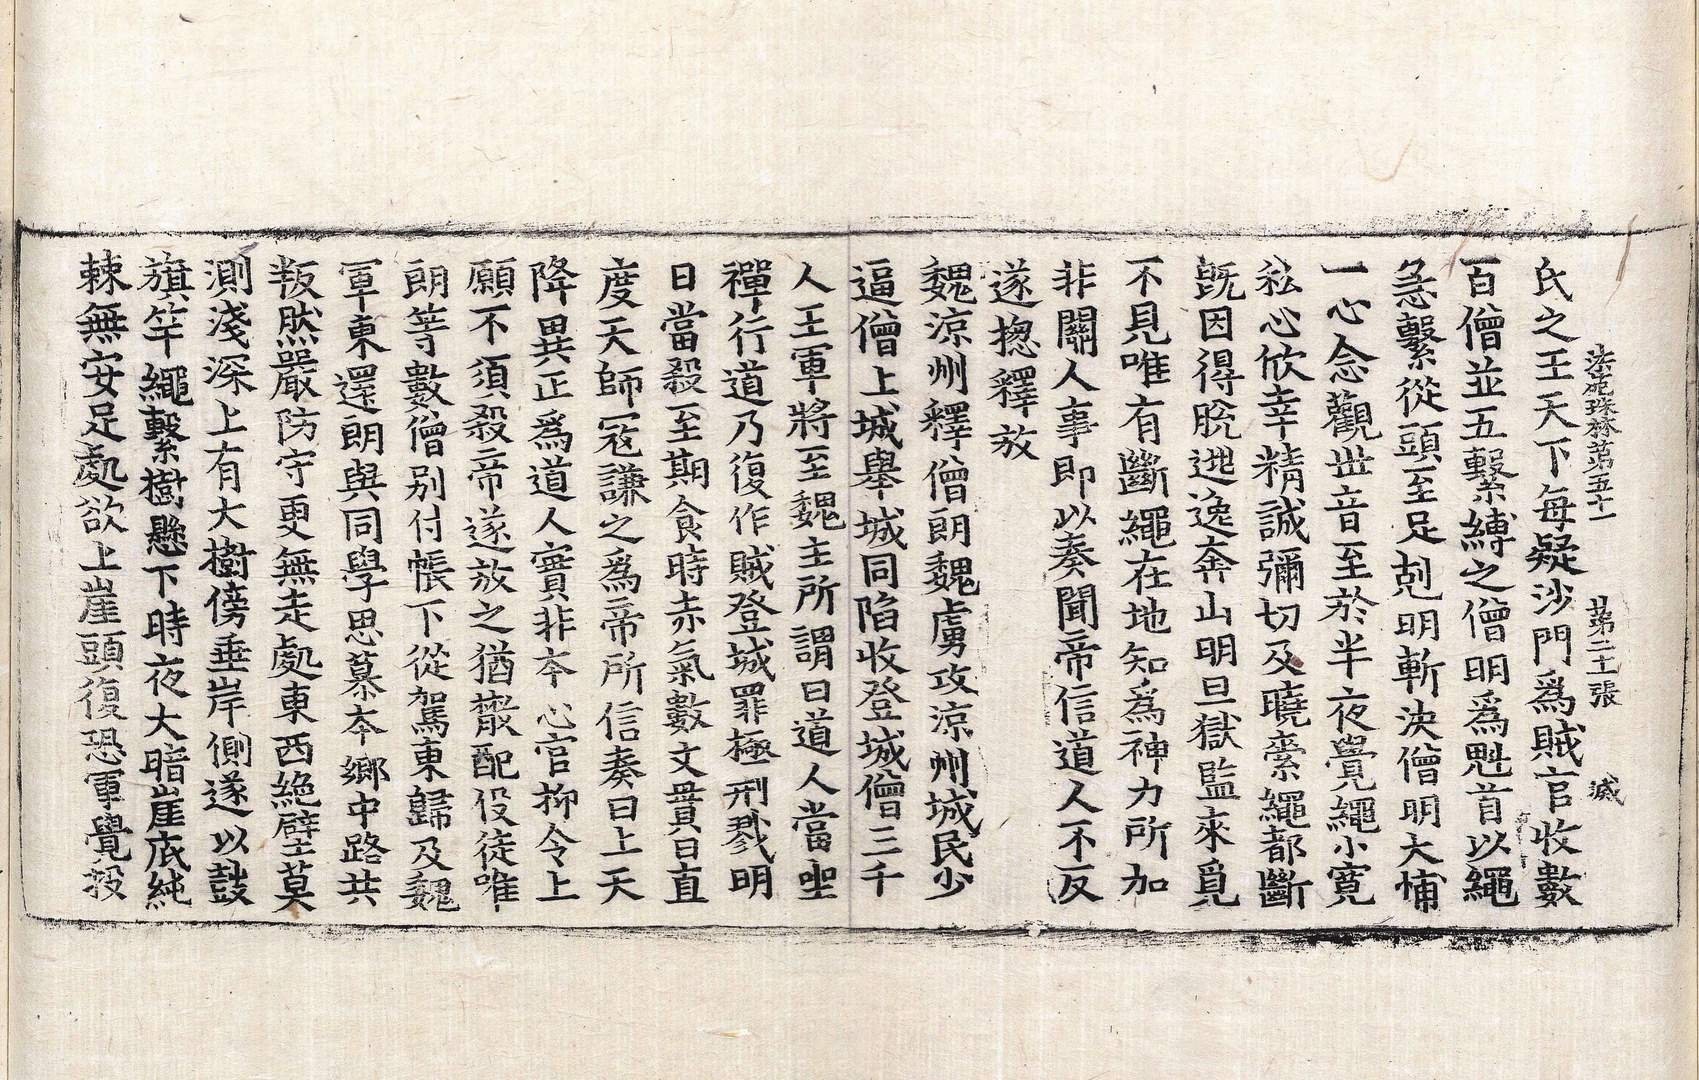 法苑珠林第五十一 第二十張 㓕
氏之王天下每疑沙門爲賊官收數
百僧並五繫縛之僧明爲魁首以繩
急繫從頭至足剋明斬決僧明大怖
一心念觀世音至於半夜覺繩小寬
私心欣幸精誠彌切及曉索繩都斷
旣因得脫逃逸奔山明旦獄監來覓
不見唯有斷繩在地知爲神力所加
非關人事即以奏聞帝信道人不反
遂揔釋放
魏涼州釋僧朗魏虜攻涼州城民少
逼僧上城舉城同陷收登城僧三千
人王軍將至魏主所謂曰道人當坐
禪行道乃復作賊登城罪極刑戮明
日當殺至期食時赤氣數丈貫日直
度天師寇謙之爲帝所信奏曰上天
降異正爲道人實非本心官抑令上
願不須殺帝遂放之猶散配役徒唯
朗等數僧別付帳下從駕東歸及魏
軍東還朗與同學思慕本鄉中路共
叛然嚴防守更無走處東西絶壁莫
測淺深上有大樹傍垂岸側遂以鼓
旗竿繩繫樹懸下時夜大暗崖底純
棘無安足處欲上崖頭復恐軍覺投